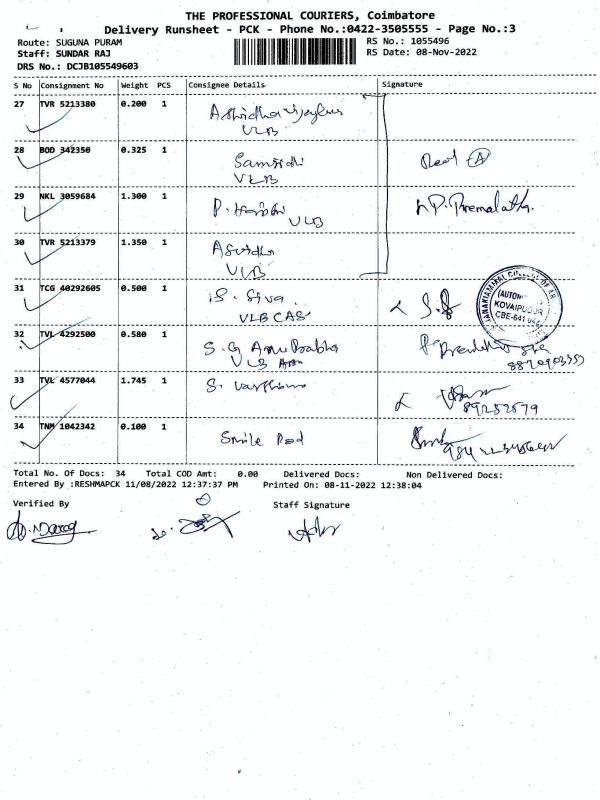 THE PROFESSIONAL COURIERS, Coimbatore
Delivery Runsheet - PCK - Phone No.:0422-3505555 - Page No.:3
Route: SUGUNA PURAM
Staff: SUNDAR RAJ
DRS No.: DCJB105549603
RS No.: 1055496
RS Date: 08-Nov-2022
S No Consignment No Weight PCS Consignee Details Signature
27 TVR 5213380 0.200 1
VLB
28 BOD 342350 0.325 1
VLB
29 NKL 3059684 1.300 1 P.
VLB P. Premalatha.
30 TVR 5213379 1.350 1
VLB
31 TCG 40292605 0.500 1 S. Siva
VLBCAS
(AUTON
KOVAIPUDUR
CBE-641 042
32 TVL 4292500 0.580 1 S.G Anu Prabha
VLB
33 TVL 4577044 1.745 1 S.
34 TNM 1042342 0.100 1 Smile Pod
Total No. Of Docs: 34 Total COD Amt: 0.00 Delivered Docs: Non Delivered Docs:
Entered By :RESHMAPCK 11/08/2022 12:37:37 PM Printed On: 08-11-2022 12:38:04
Verified By Staff Signature